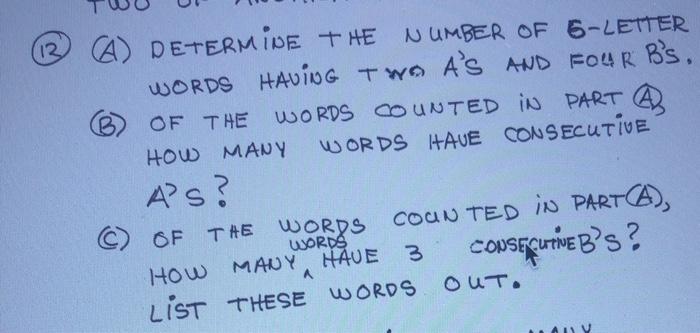 TWO
(12) (A) DETERMINE THE NUMBER OF 6-LETTER
WORDS HAVING TWO A'S AND FOUR B'S.
(B) OF THE WORDS COUNTED IN PART (A),
HOW MANY WORDS HAVE CONSECUTIVE
A'S?
(C) OF THE WORDS COUNTED IN PART (A),
WORDS
HOW MANY ^ HAVE 3 CONSECUTIVE B'S?
LIST THESE WORDS OUT.